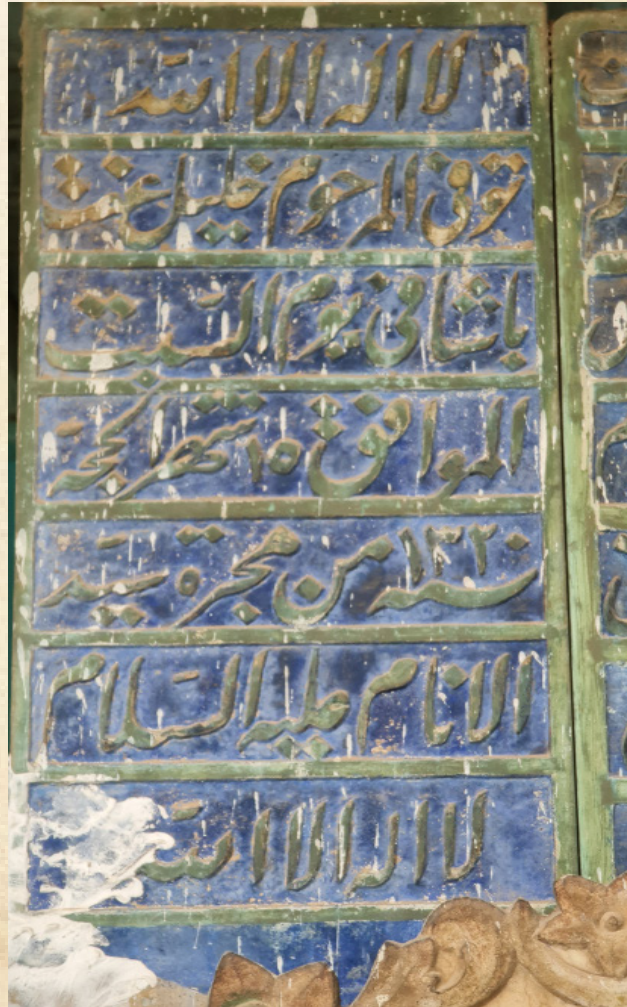 لا اله الا الله
توفى المرحوم خليل عفت
باشا فى يوم السبت
الموافق ١٥ شهر الحجة
سنه ١٣٢٠ من هجرة سيّد
الانام عليه السّلام
لا اله الا الله